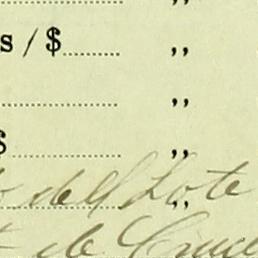 „
s / $ „
„
$ „
o del Lote „
de Cruc